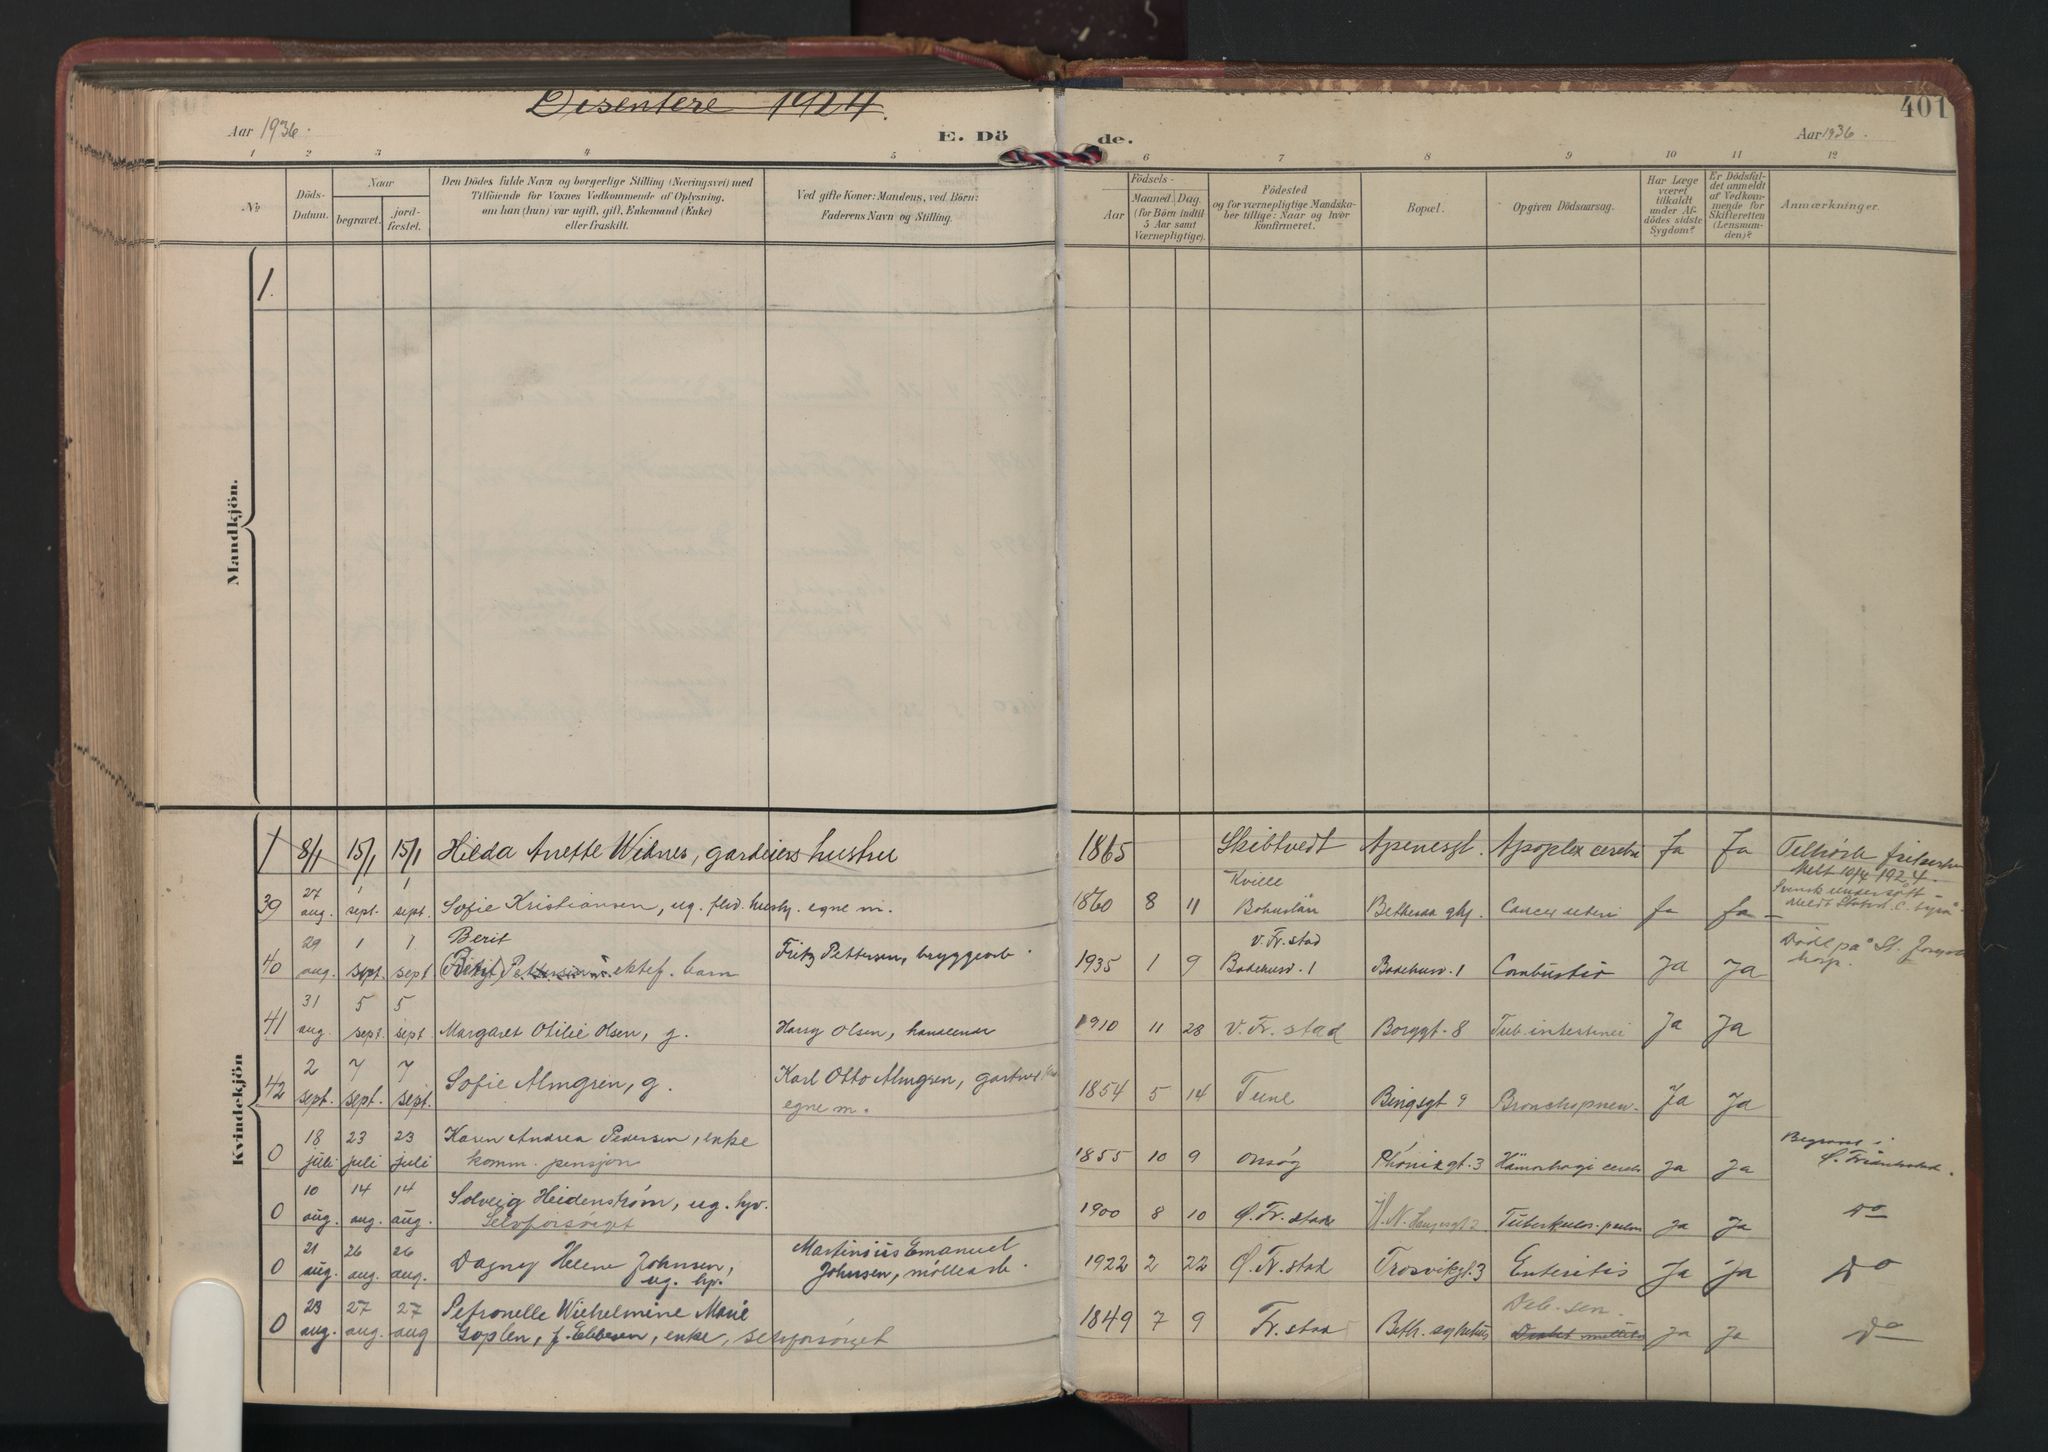 Disentere 1924.
401
Aar 1936.
E. Dö
de.
Aar 1936.
1 2 3 4 5 6 7 8 9 10 11 12
No
Döds-Datum.
Naar
begravet.
jord-fæstet.
Den Dödes fulde Navn og borgerlige Stilling (Næringsvei) med
Tilföiende for Voxnes Vedkommende af Oplysning,
om han (hun) var ugift, gift, Enkemand (Enke)
eller fraskilt.
Ved gifte Koner: Mandens, ved Börn:
Faderens Navn og Stilling.
Födsels-
Aar
Maaned. Dag.
(for Börn indtil
5 Aar samt
Værnepligtige).
Födested
og for værnepligtige Mandska-
ber tillige: Naar og hvor
konfirmeret.
Bopæl.
Opgiven Dödsaarsag.
Har Læge
været
tilkaldt
under Af-
dödes sidste
Sygdom?
Er Dödsfal-
det anmeldt
af Vedkom-
mende for
Skifteretten
(Lensman-
den)?
Anmærkninger.
Mandkjön.
1.
Kvindekjön
1 8/1 15/1 15/1 Hilda Anette Widnes, gardeiers hustru 1865 Skibtvedt Apenesgt. Apoplex cerebri Ja Ja Tilhørte frikirken
Melt 10/4 1924.
39 27 aug. 1 sept. 1 sept. Sofie Kristiansen, ug. husbj. egne m. 1860 8 11 Kville Bohuslän Bethesda Cancer uteri Ja Ja Svensk undersått
40 29 aug. 1 sept. 1 sept Berit
(Berit) Pettersen ektef. barn Fritz Pettersen, bryggearb. 1935 1 9 V. Fr.stad Badehusv. 1 Badehusv. 1 Combustio Ja Ja Döde på St. Jørgens
hosp.
41 31 aug. 5 sept. 5 sept. Margaret Otilie Olsen, g. Harry Olsen, 1910 11 28 V. Fr.stad Borggt. 8 Tub. intestinei Ja Ja
42 2 sept. 7 sept. 7 sept. Sofie Almgren, g. Karl Otto Almgren, gartner
egne m. 1854 5 14 Tune Bingsgt 9 Bronchopneu. Ja Ja
0 18 juli 23 juli 23 juli Karen Andrea Pedersen, enke
komm. pensjon 1855 10 9 Onsøy Phønixgt. 3 Hämorhagi cerebri Ja Ja Begravet i
Ø. Fredrikstad.
0 10 aug. 14 aug. 14 aug. Solveig Heidenstrøm, ug. hjv.
Selvforsørget 1900 8 10 Ø. Fr.stad Tuberkulos. pulm Ja Ja Do
0 21 aug. 26 aug. 26 aug. Dagny Helene Johnsen,
ug. hj. Martinius Emanuel
Johnsen, møllearb. 1922 2 22 Ø. Fr.stad Trosvikgt. 3 Enteritis Ja Ja Do
0 23 aug. 27 aug. 27 aug Petronelle Wilhelmine Marie
Goplen, f. Ebbesen, enke, selvforsørget 1849 7 9 Fr.stad Beth. sykehus Deb. sen.
Diabet mellitus Ja Ja Do